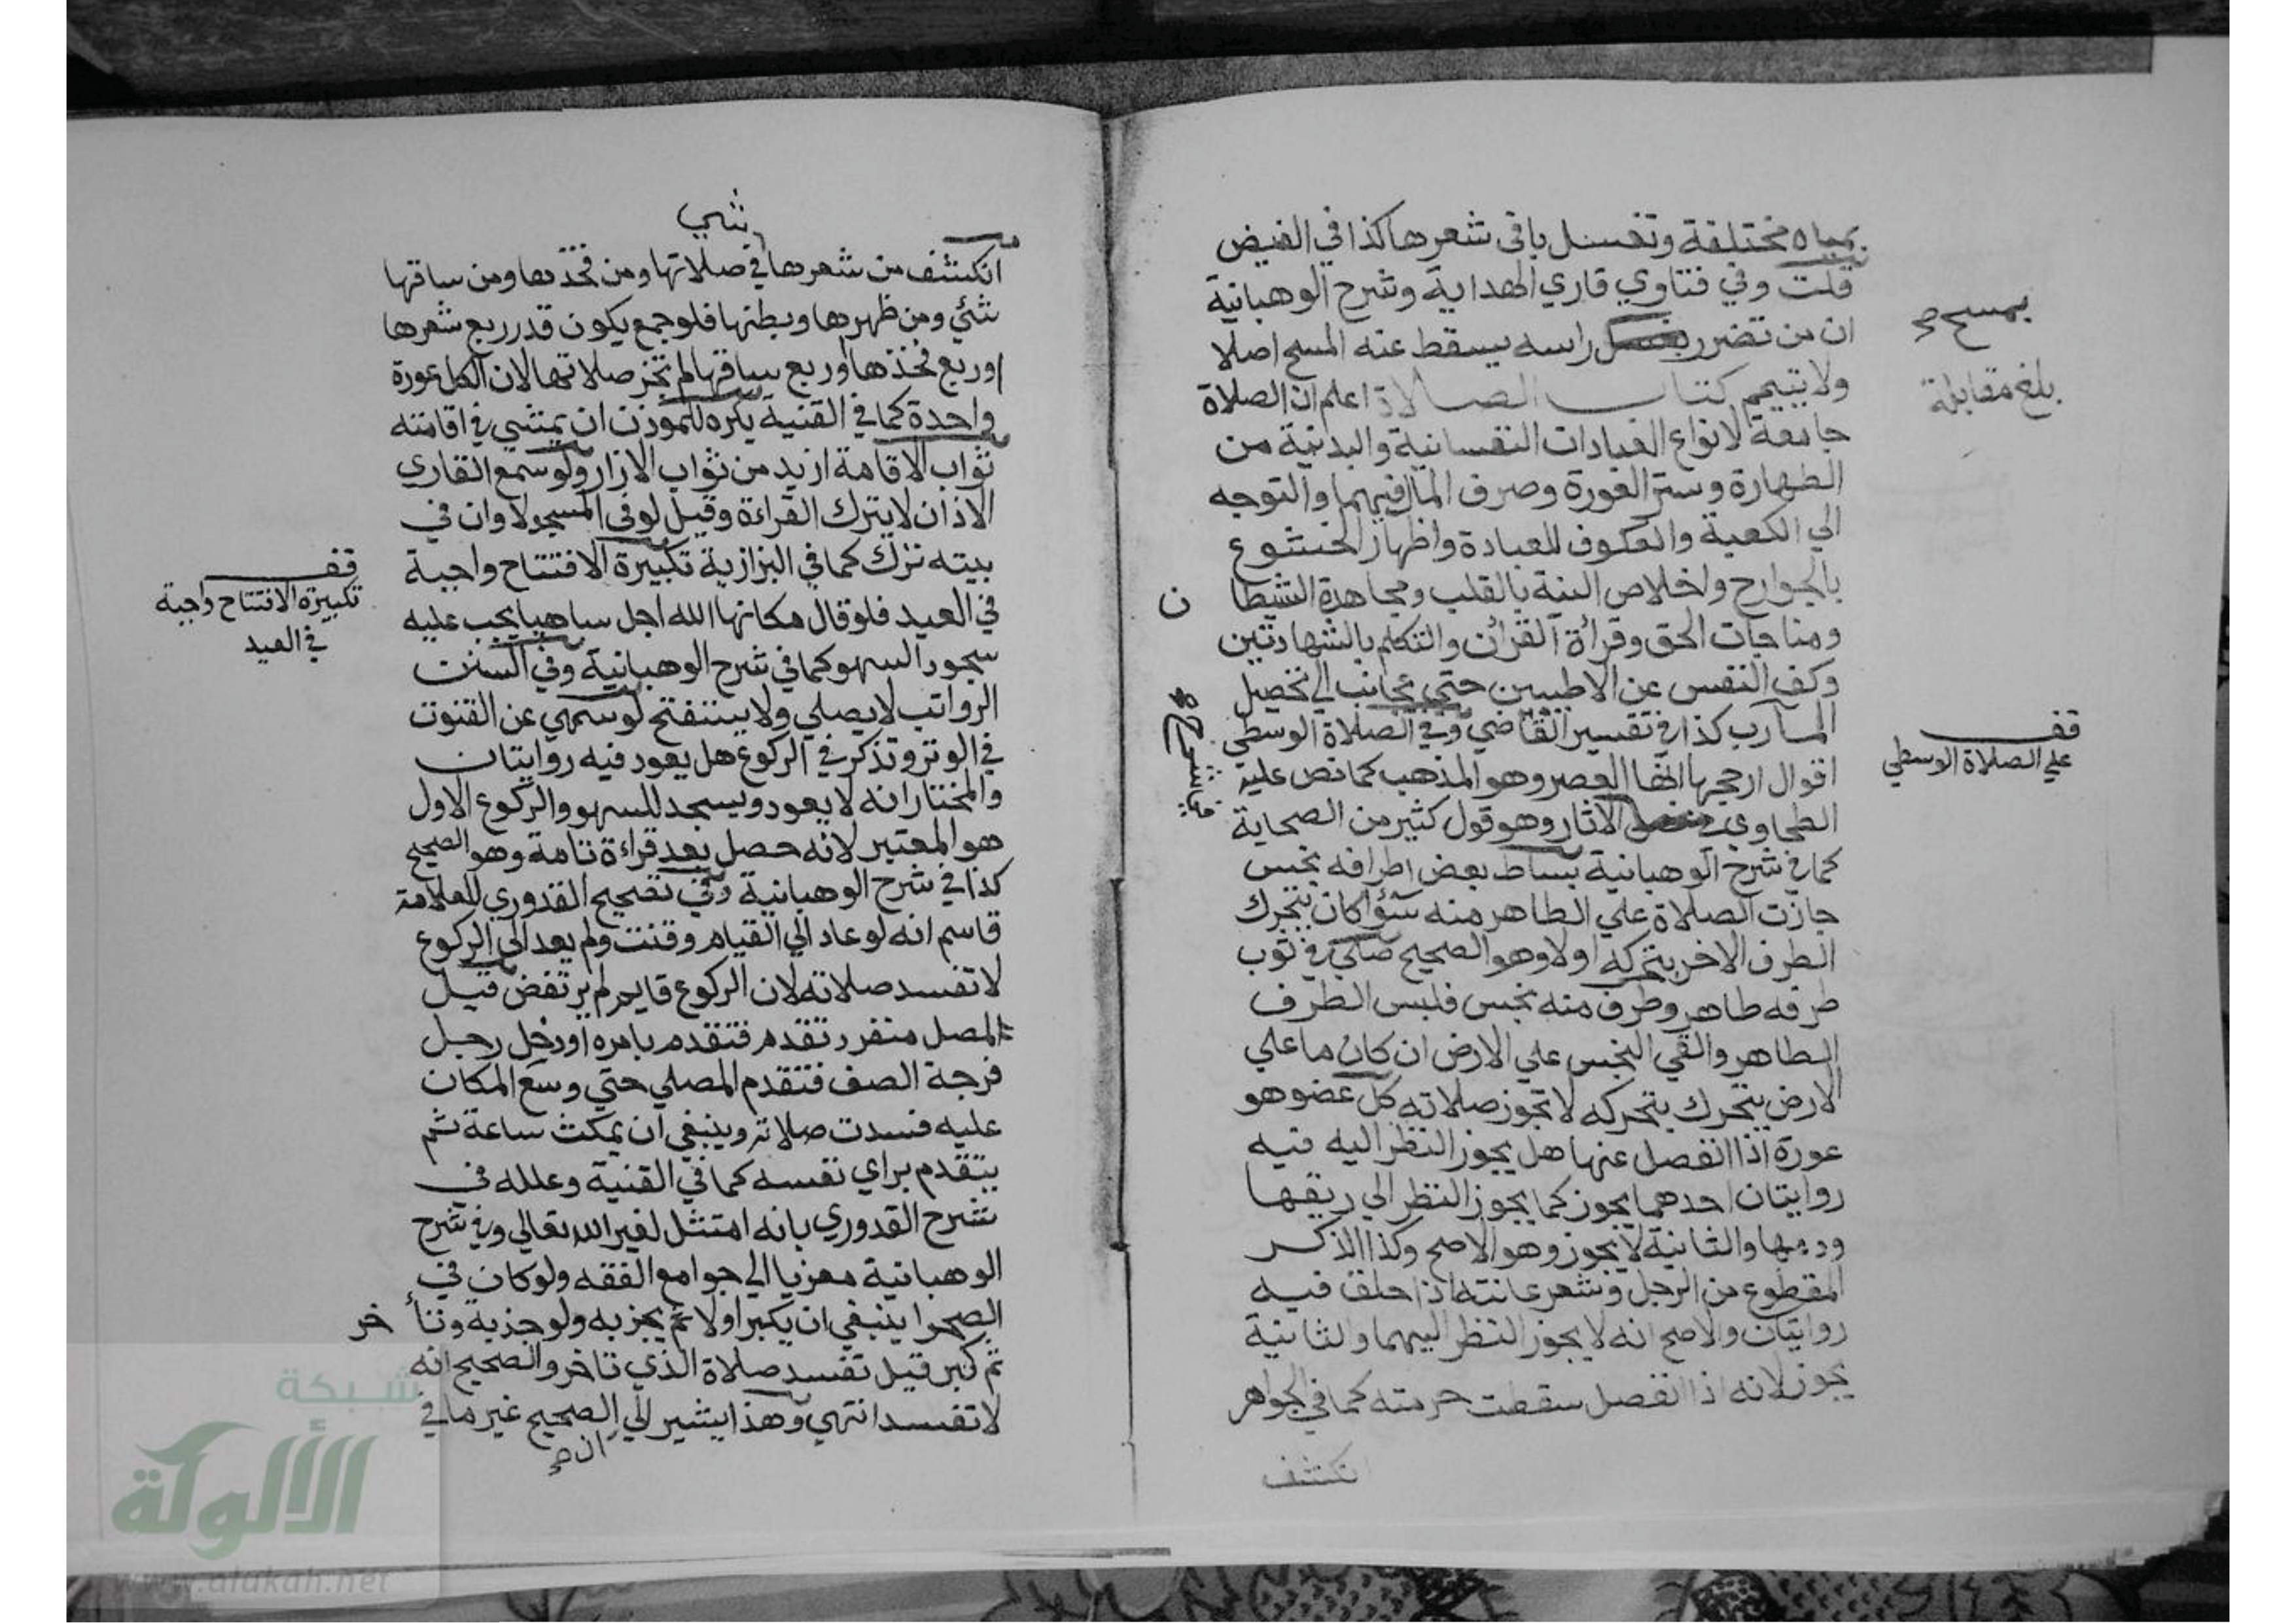 بمياه مختلفة وتغسل باقي شعرها كذا في الفيض
قلت وفي فتاوي قاري الهداية وشرح الوهبانية
ان من تضرر بغسل راسه يسقط عنه المسح اصلا
بمسح صح
ولا تيمم كتاب الصلاة اعلم ان الصلاة
بلغ مقابلة
جامعة لانواع العبادات النفسانية والبدنية من
الطهارة وستر العورة وصرف المال فيهما والتوجه
الي الكعبة والعكوف للعبادة واظهار الخشوع
بالجوارح واخلاص النية بالقلب ومجاهدة الشيطا ن
ومناجات الحق وقرأة القران والتكلم بالشهادتين
وكف النفس عن الاطيبين حتي يجانب الي تحصيل
المآرب كذا في تفسير القاضي وفي الصلاة الوسطي
قف
علي الصلاة الوسطي
اقوال ارجحها انها العصر وهو المذهب كما نص عليه
الطحاوي في الاثار وهو قول كثير من الصحابة
في شرح
كما في شرح الوهبانية بساط بعض اطرافه نجس
جازت الصلاة علي الطاهر منه سؤا كان يتحرك
الطرف الاخر بتحركه اولا وهو الصحيح صلي في ثوب
طرفه طاهر وطرف منه نجس فلبس الطرف
الطاهر والقي النجس علي الارض ان كان ما علي
الارض يتحرك بتحركه لا تجوز صلاته كل عضو هو
عورة اذا انفصل عنها هل يجوز النظر اليه فيه
روايتان احدهما يجوز كما يجوز النظر الي ريقها
ودمها والثانية لا يجوز وهو الاصح وكذا الذكر
المقطوع من الرجل وشعر عانته اذا حلق فيه
روايتان والاصح انه لا يجوز النظر اليهما والثانية
يجوز لانه اذا انفصل سقطت حرمته كما في الجواهر
انكشف
شي
انكشف من شعرها في صلاتها ومن فخذها ومن ساقها
شئي ومن ظهرها وبطنها فلو جمع يكون قدر ربع شعرها
او ربع فخذها او ربع ساقها لم تجز صلاتها لان الكل عورة
واحدة كما في القنية يكره للموذن ان يمشي في اقامته
ثواب الاقامة ازيد من ثواب الاذان ولو سمع القاري
الاذان لا يترك القراءة وقيل لو في المسجد لا وان في
بيته ترك كما في البزازية تكبيرة الافتتاح واجبة
قف
تكبيرة الافتتاح واجبة
في العيد
في العيد فلو قال مكانها الله اجل ساهيا يجب عليه
سجود السهو كما في شرح الوهبانية وفي السنن
الرواتب لا يصلي ولا يستفتح لو سهي عن القنوت
في الوتر وتذكر في الركوع هل يعود فيه روايتان
والمختار انه لا يعود ويسجد للسهو والركوع الاول
هو المعتبر لانه حصل بعد قراءة تامة وهو الصحيح
كذا في شرح الوهبانية وفي تصحيح القدوري للعلامة
قاسم انه لو عاد الي القيام وقنت ولم يعد الي الركوع
لا تفسد صلاته لان الركوع قايم لم يرتفض قيل
لمصل منفرد تقدم فتقدم بامره او دخل رجل
فرجة الصف فتقدم المصلي حتي وسع المكان
عليه فسدت صلاته وينبغي ان يمكث ساعة ثم
يتقدم براي نفسه كما في القنية وعلله في
شرح القدوري بانه امتثل لغير الله تعالي وفي شرح
الوهبانية معزيا الي جوامع الفقه ولو كان في
الصحرا ينبغي ان يكبر اولا ثم يجزبه ولو جذبه وتأ خر
ثم كبر قيل تفسد صلاة الذي تاخر والصحيح انه
لا تفسد انتهي وهذا يشير الي الصحيح غير ما في
ان صح
شبكة
الألوكة
www.alukah.net